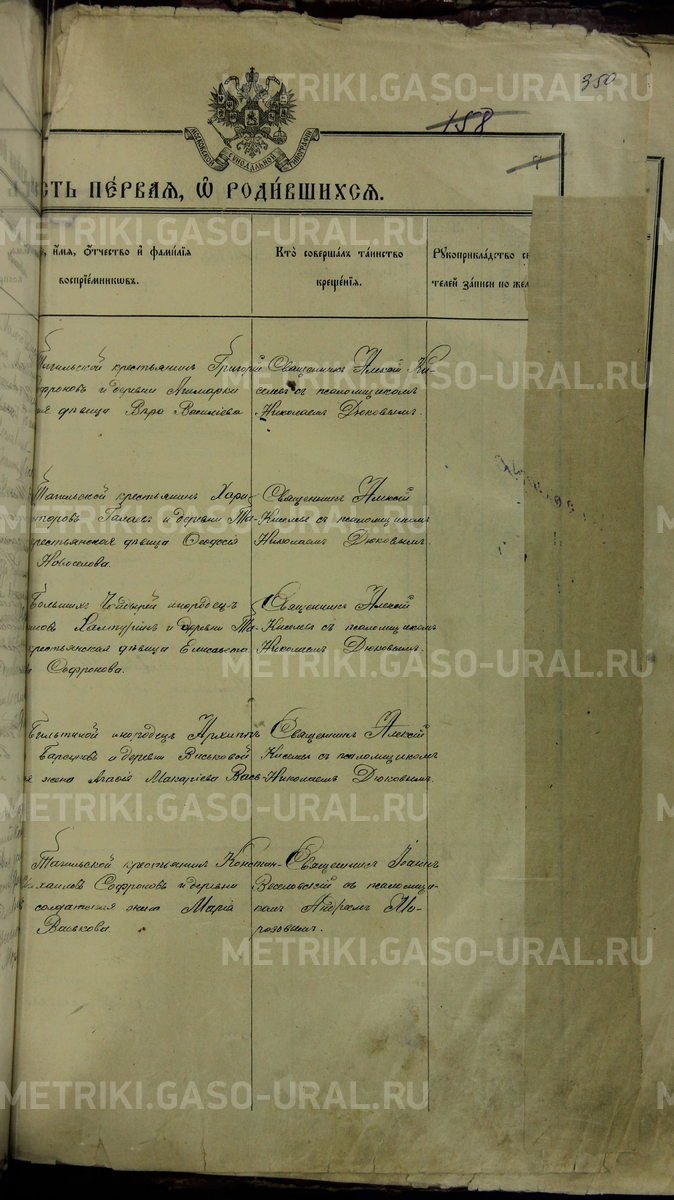 METRIKI.GASO-URAL.RU
350
158
МОСКОВСКОЙ СѴНОДАЛЬНОЙ ТИПОГРАФІИ
СТЬ ПЕ́РВАѦ, Ѡ҆ РОДИ́ВШИХСѦ.
METRIKI.GASO-URAL.RU
и҆́мѧ, ѻ҆́тчество и҆ фами́лїѧ
воспрїе́мникѡвъ.
Кто̀ соверша́лъ та́инство
креще́нїѧ.
Рꙋкоприкла́дство
телей за́писи по жел
METRIKI.GASO-URAL.RU
гильской крестьянинъ Григорій
фроновъ и деревни
я дѣвица Вѣра Василіева
Священникъ Алексій Ки-
селевъ съ псаломщикомъ
Николаемъ Дюковымъ.
Тагильской крестьянинъ Хари-
торовъ и деревни Та-
крестьянская дѣвица Ѳеодосія
Новоселова.
Священникъ Алексій
Киселевъ съ псаломщикомъ
Николаемъ Дюковымъ.
METRIKI.GASO-URAL.RU
Большихъ инородецъ
и деревни Та-
крестьянская дѣвица Елисавета
Софронова.
Священникъ Алексій
Киселевъ съ псаломщикомъ
Николаемъ Дюковымъ.
METRIKI.GASO-URAL.RU
инородецъ Архиппъ
и деревни Васьковой
я жена Агафія Макаріева Вась-
Священникъ Алексій
Киселевъ съ псаломщикомъ
Николаемъ Дюковымъ.
METRIKI.GASO-URAL.RU
Тагильской крестьянинъ Констан-
хаиловъ Софроновъ и деревни
солдатская жена Марія
Васькова.
Священникъ Іоаннъ
Веселовскій съ псаломщи-
комъ Андреемъ Мо-
розовымъ.
METRIKI.GASO-URAL.RU
METRIKI.GASO-URAL.RU